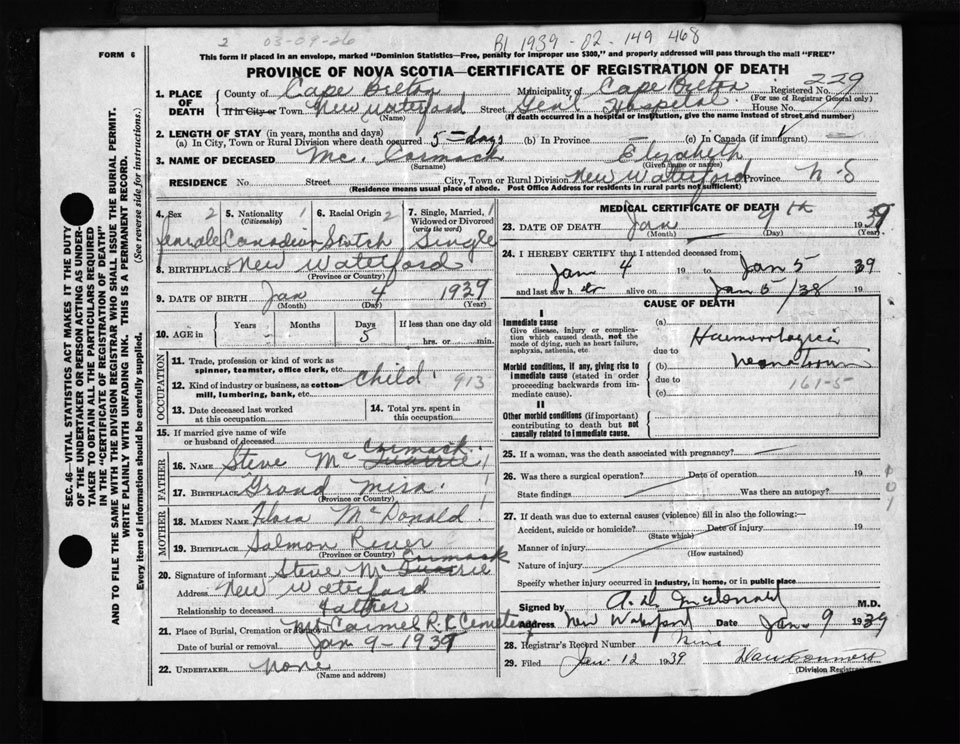 2 03-07-26
B1 1939-02-149468
FORM 6
This form if placed in an envelope, marked "Dominion Statistics—Free, penalty for improper use $300," and properly addressed will pass through the mail "FREE"
PROVINCE OF NOVA SCOTIA—CERTIFICATE OF REGISTRATION OF DEATH
1. PLACE OF DEATH County of Cape Breton Municipality of Cape Breton Registered No. 229
(For use of Registrar General only)
If in City or Town New Waterford Street Genl Hospital House No.
(Name) (If death occurred in a hospital or institution, give the name instead of street and number)
2. LENGTH OF STAY (in years, months and days)
(a) In City, Town or Rural Division where death occurred 5 days (b) In Province (c) In Canada (if immigrant)
3. NAME OF DECEASED Mc. Cormack Elizabeth
(Surname) (Given name or names)
RESIDENCE No. Street City, Town or Rural Division New Waterford Province N-S
(Residence means usual place of abode. Post Office Address for residents in rural parts not sufficient)
SEC. 46—VITAL STATISTICS ACT MAKES IT THE DUTY
OF THE UNDERTAKER OR PERSON ACTING AS UNDER-
TAKER TO OBTAIN ALL THE PARTICULARS REQUIRED
IN THE "CERTIFICATE OF REGISTRATION OF DEATH"
AND TO FILE THE SAME WITH THE DIVISION REGISTRAR WHO SHALL ISSUE THE BURIAL PERMIT.
WRITE PLAINLY WITH UNFADING INK. THIS IS A PERMANENT RECORD.
Every item of information should be carefully supplied. (See reverse side for instructions.)
4. Sex 2 5. Nationality 1 6. Racial Origin 2 7. Single, Married, 1
(Citizenship) Widowed or Divorced
(write the word)
female Canadian Scotch Single
8. BIRTHPLACE New Waterford
(Province or Country)
9. DATE OF BIRTH Jan 4 1939
(Month) (Day) (Year)
10. AGE in Years Months Days If less than one day old
5 hrs. or min.
OCCUPATION
11. Trade, profession or kind of work as
spinner, teamster, office clerk, etc. Child 913
12. Kind of industry or business, as cotton-
mill, lumbering, bank, etc.
13. Date deceased last worked
at this occupation
14. Total yrs. spent in
this occupation
15. If married give name of wife
or husband of deceased
FATHER
Cormack
16. NAME Steve Mc Quarrie 1
17. BIRTHPLACE Grand Mira 1
(Province or Country)
MOTHER
18. MAIDEN NAME Flora McDonald 1
19. BIRTHPLACE Salmon River
(Province or Country)
Cormack
20. Signature of informant Steve Mc Quarrie
Address New Waterford
Relationship to deceased Father
21. Place of Burial, Cremation or Removal Mt Carmel R.C. Cemetery
Date of burial or removal Jan 9-1939
22. UNDERTAKER None
(Name and address)
MEDICAL CERTIFICATE OF DEATH
23. DATE OF DEATH Jan 9th 1939
(Month) (Day) (Year)
24. I HEREBY CERTIFY that I attended deceased from:
Jan 4 19 to Jan 5 39
and last saw her alive on Jan 5/38 19
CAUSE OF DEATH
I
Immediate cause
Give disease, injury or complica-
tion which caused death, not the
mode of dying, such as heart failure,
asphyxia, asthenia, etc.
Morbid conditions, if any, giving rise to
immediate cause (stated in order
proceeding backwards from im-
mediate cause).
II
Other morbid conditions (if important)
contributing to death but not
causally related to immediate cause.
(a)
due to
(b)
due to 161-5
(c)
25. If a woman, was the death associated with pregnancy?
26. Was there a surgical operation? Date of operation 19
State findings Was there an autopsy?
27. If death was due to external causes (violence) fill in also the following:—
Accident, suicide or homicide? Date of injury 19
(State which)
Manner of injury
(How sustained)
Nature of injury
Specify whether injury occurred in industry, in home, or in public place
Signed by A. D. McDonald M.D.
Address New Waterford Date Jan. 9 1939
28. Registrar's Record Number Nine
29. Filed Jan. 12 1939
(Division Registrar)